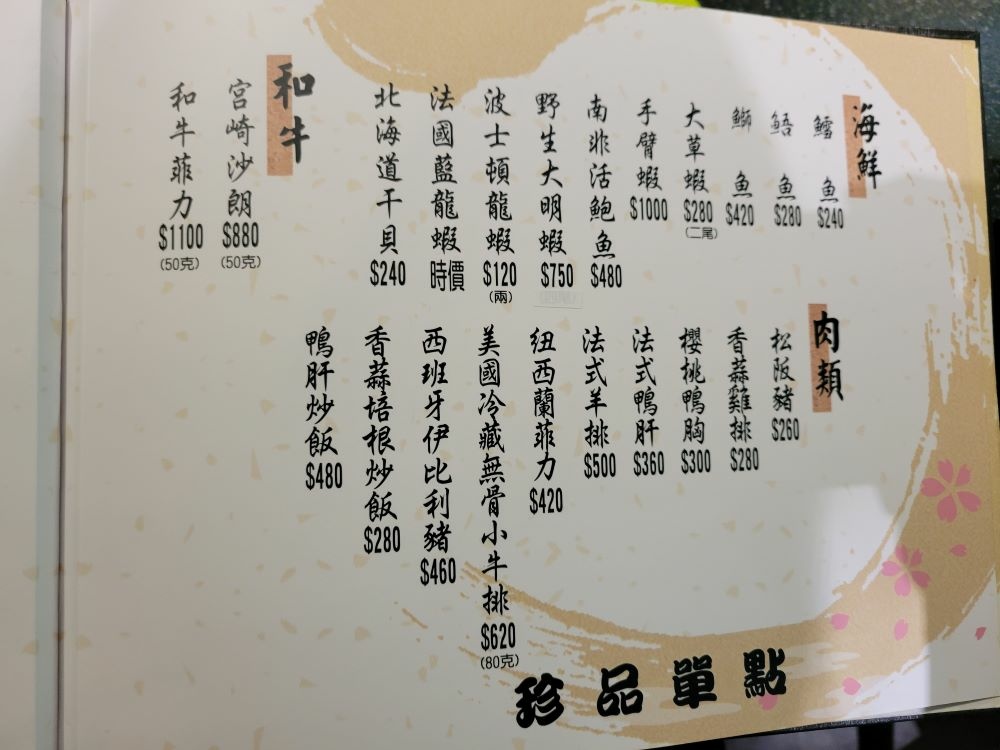 海鮮
鱈魚
$240
鯃魚
$280
鰤魚
$420
大草蝦
$280
(二尾)
手臂蝦
$1000
南非活鮑魚
$480
野生大明蝦
$750
波士頓龍蝦
$120
(兩)
法國藍龍蝦
時價
北海道干貝
$240
和牛
宮崎沙朗
$880
(50克)
和牛菲力
$1100
(50克)
肉類
松阪豬
$260
香蒜雞排
$280
櫻桃鴨胸
$300
法式鴨肝
$360
法式羊排
$500
紐西蘭菲力
$420
美國冷藏無骨小牛排
$620
(80克)
西班牙伊比利豬
$460
香蒜培根炒飯
$280
鴨肝炒飯
$480
珍品單點